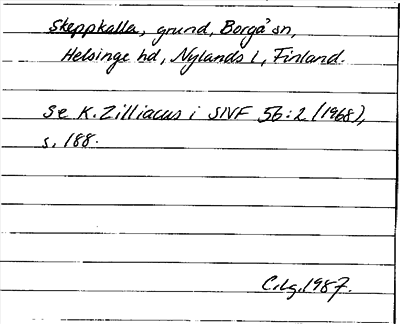 Skeppkalla, grund, Borgå sn,
Helsinge hd, Nylands l, Finland.
Se K. Zilliacus i SNF 56:2 (1968),
s. 188.
C.Lg. 1987.